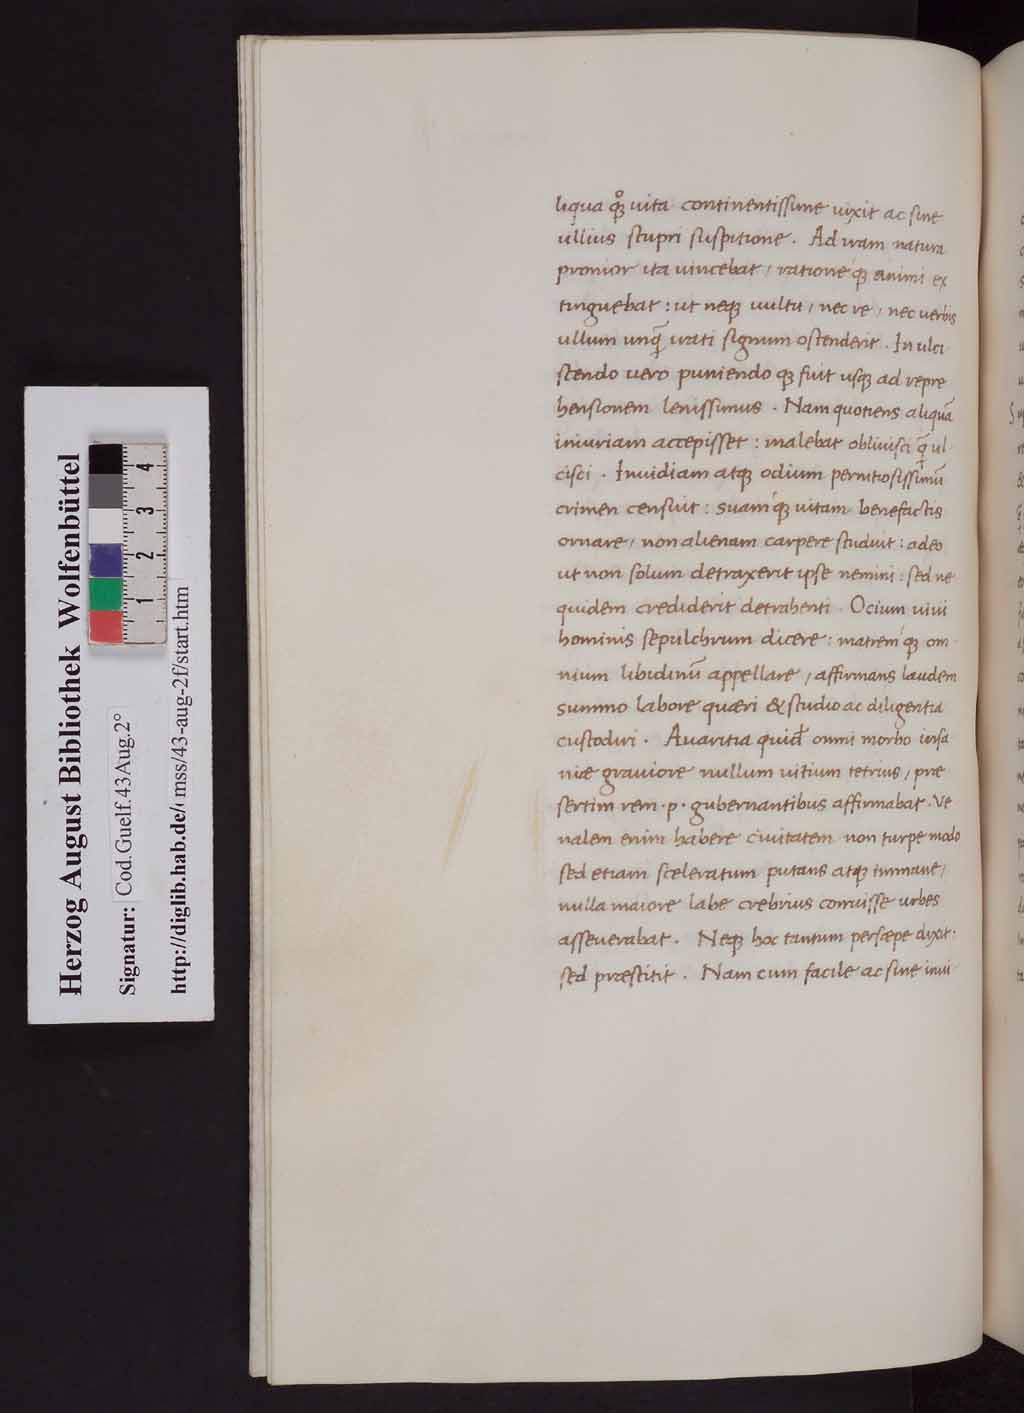 liqua qͦꝫ uita continentissime uixit ac sine
ullius stupri suspitione. Ad iram natura
pronior ita uincebat / rationeqꝫ animi ex
tinguebat: ut neqꝫ uultu / nec re / nec uerbis
ullum unq̄ irati signum ostenderit. In ulci
scendo uero puniendoqꝫ fuit usqꝫ ad repre
hensionem lenissimus. Nam quotiens aliquā
iniuriam accepisset: malebat obliuisci q̄ ul
cisci. Inuidiam atqꝫ odium pernitiosissimū
crimen censuit: suamqꝫ uitam benefactis
ornare / non alienam carpere studuit: adeo
ut non solum detraxerit ipse nemini: sed ne
quidem crediderit detrahenti. Ocium uiui
hominis sepulchrum dicere: matremqꝫ om
nium libidinū appellare / affirmans laudem
summo labore quæri & studio ac diligentia
custodiri. Auaritia quid̄ omni morbo insa
niæ grauiore nullum uitium tetrius / præ
sertim rem·p· gubernantibus affirmabat. Ve
nalem enim habere ciuitatem non turpe modo
sed etiam sceleratum putans atqꝫ immane /
nulla maiore labe crebrius corruisse urbes
asseuerabat. Neqꝫ hoc tantum persæpe dixit:
sed præstitit. Nam cum facile ac sine inui
Herzog August Bibliothek Wolfenbüttel
Signatur: Cod.Guelf.43Aug.2°
http://diglib.hab.de/mss/43-aug-2f/start.htm
1 2 3 4